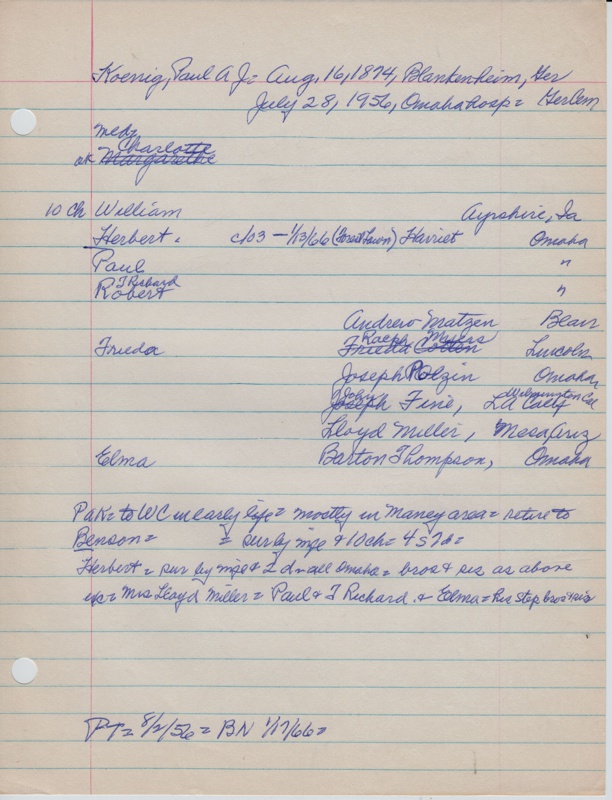 Koenig, Paul A J = Aug, 16, 1874, Blankenheim, Ger
July 28, 1956, Omaha hosp = Herlem
med,
Charlotte
ok Margarethe
10 Ch William Ayrshire, Ia
Herbert, c/03 - 1/13/66 (Forest Lawn) Harriet Omaha
Paul "
T Richard
Robert "
Andrew Matzen Blair
Ralph Myers
Frieda Frieda Cotten Lincoln
Joseph Polzin Omaha
John Wilmington Cal
Joseph Fine, LA Calif
Lloyd Miller, Mesa Ariz
Elma Barton Thompson, Omaha
PaK = to WC in early life = mostly in Maney area = retire to
Benson = = sur by mge & 10 ch = 4 s 7 d =
Herbert = sur by mge & 2 d = all Omaha = bros & sis as above
ex = Mrs Lloyd Miller = Paul & T Richard & Elma = his step bros & sis
PT = 8/2/56 = BN 1/17/66 =